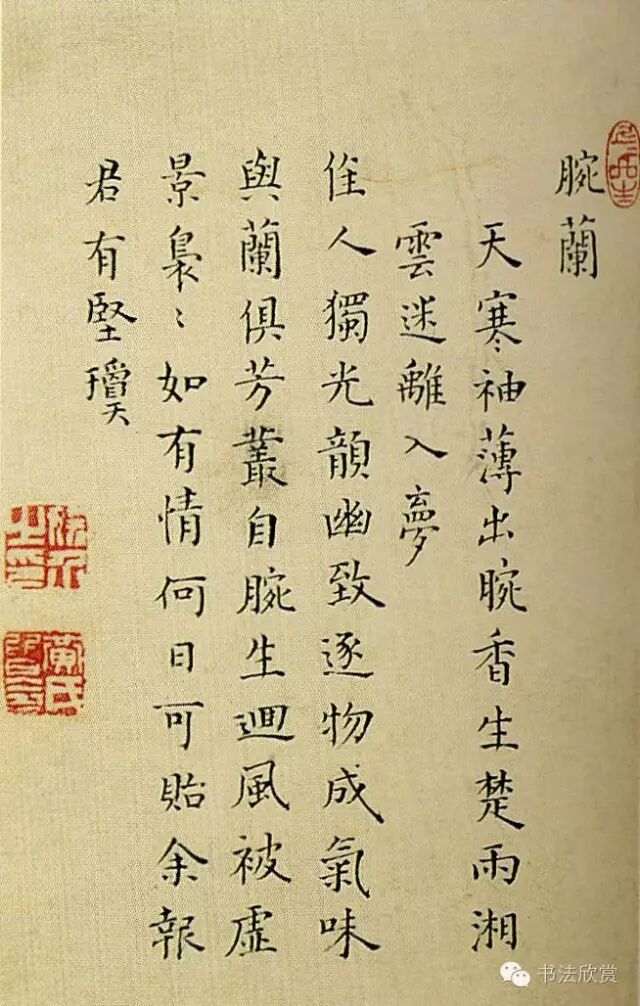 腕蘭
天寒袖薄出腕香生楚雨湘
雲迷離入夢
佳人獨光韻幽致逐物成氣味
與蘭俱芳叢自腕生迴風被虛
景裊〻如有情何日可貽余報
君有堅瓊
书法欣赏